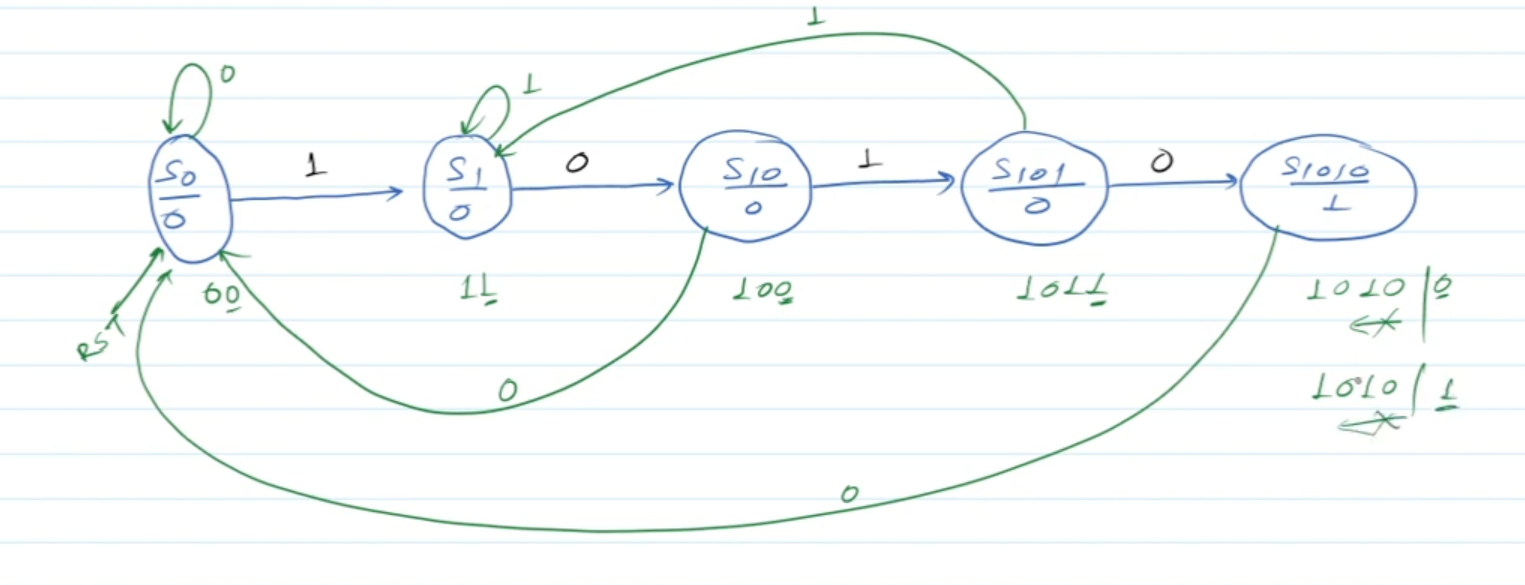 1
0
1
S0
0
1
S1
0
0
S10
0
1
S101
0
0
S1010
1
00
11
100
1011
1010 | 0
RST
0
1010 | 1
0